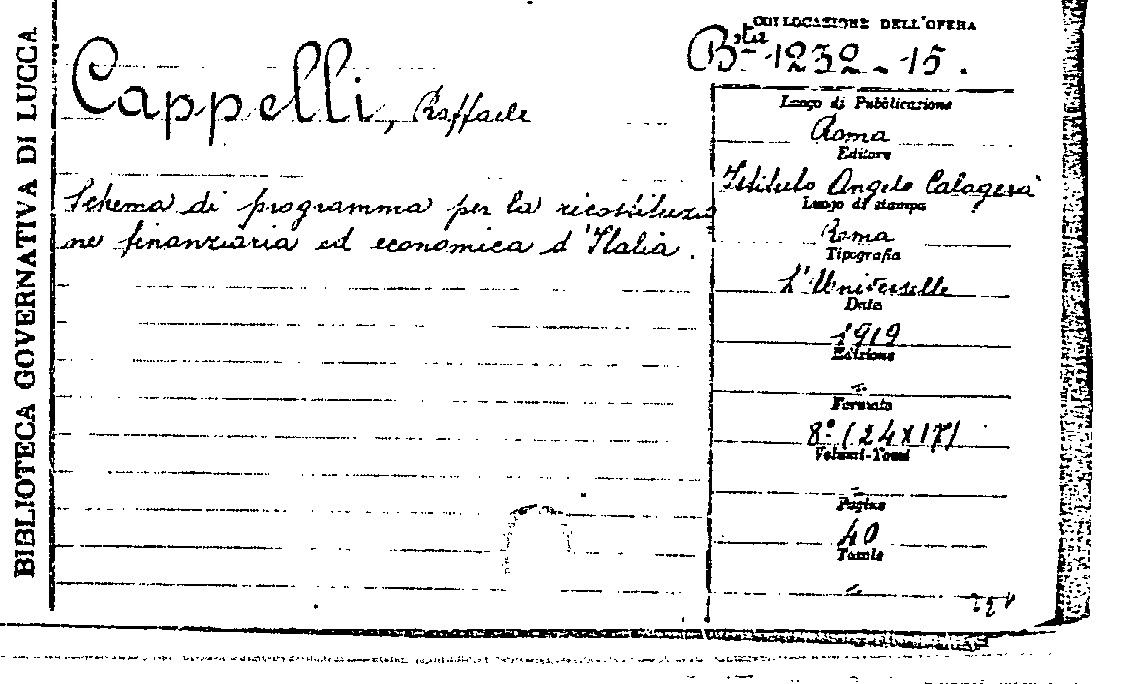 BIBLIOTECA GOVERNATIVA DI LUCCA
Cappelli, Raffaele
Schema di programma per la ricostituzio
ne finanziaria ed economica d'Italia.
COLLOCAZIONE DELL'OPERA
Bta 1232 - 15.
Luogo di Pubblicazione
Roma
Editore
Istituto Angelo Calogerà
Luogo di stampa
Roma
Tipografia
L'Universelle
Data
1919
Edizione
-
Formato
8° (24x17)
Volumi-Tomi
-
Pagine
40
Tavole
-